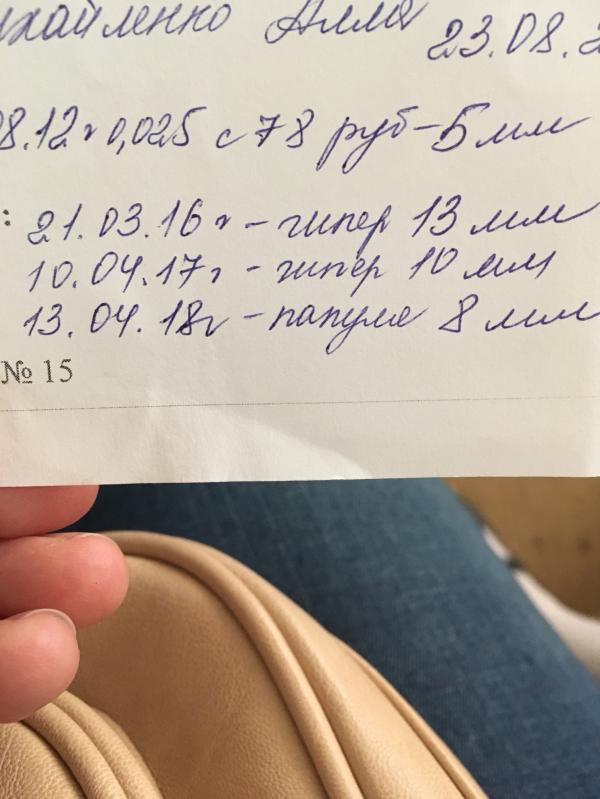 ихайленко Алла 23.08.2
28.12г 0,025 с 78 руб-5мм
: 21.03.16г - гипер 13 мм
10.04.17г - гипер 10 мм
13.04.18г - папула 8 мм
№ 15